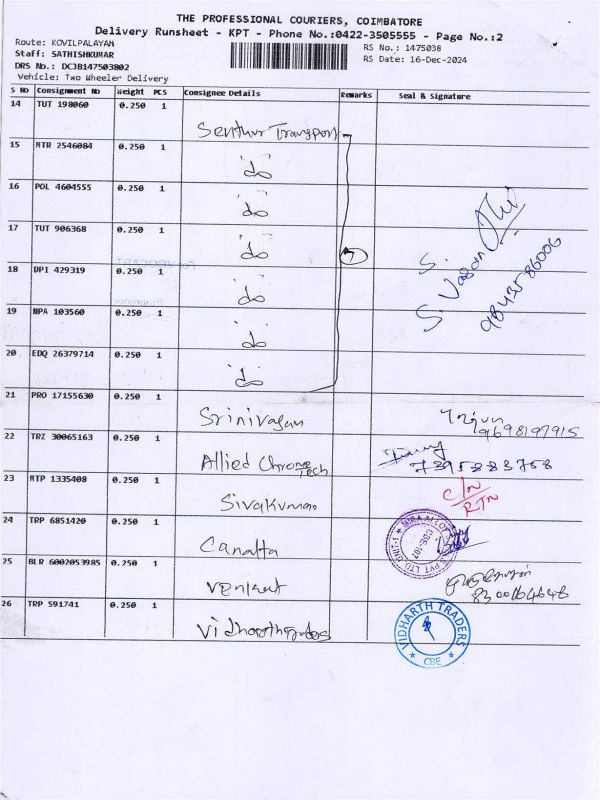 THE PROFESSIONAL COURIERS, COIMBATORE
Delivery Runsheet - KPT - Phone No.:0422-3505555 - Page No.:2
Route: KOVILPALAYAM
Staff: SATHISHKUMAR
DRS No.: DC3B147503802
Vehicle: Two Wheeler Delivery
RS No.: 1475038
RS Date: 16-Dec-2024
S NO Consignment NO Weight PCS Consignee Details Remarks Seal & Signature
14 TUT 198060 0.250 1
Senthur Transport
15 MTR 2546084 0.250 1
"do"
16 POL 4604555 0.250 1
"do
17 TUT 906368 0.250 1
"do" 7
18 DPI 429319 0.250 1
"do
19 MPA 103560 0.250 1
do
20 EDQ 26379714 0.250 1
do
S. Vasan
98435 86006
21 PRO 17155630 0.250 1
Srinivasan
9698197915
22 TRZ 30065163 0.250 1
Allied Chrome Tech
7395383758
23 MTP 1335408 0.250 1
Sivakumar
C/N
RTN
24 TRP 6851420 0.250 1
Canatta
25 BLR 6002053985 0.250 1
Venkat
26 TRP 591741 0.250 1
VIDHARTH TRADERS
CBE